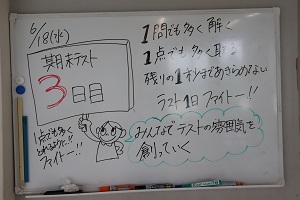 6/18(水)
期末テスト
3日目
1問でも多く解く
1点でも多く取る
残りの1秒まであきらめない
ラスト1日ファイトー!!
1点でも多く
とれるように!!
ファイトー!!
みんなでテストの雰囲気を
創っていく